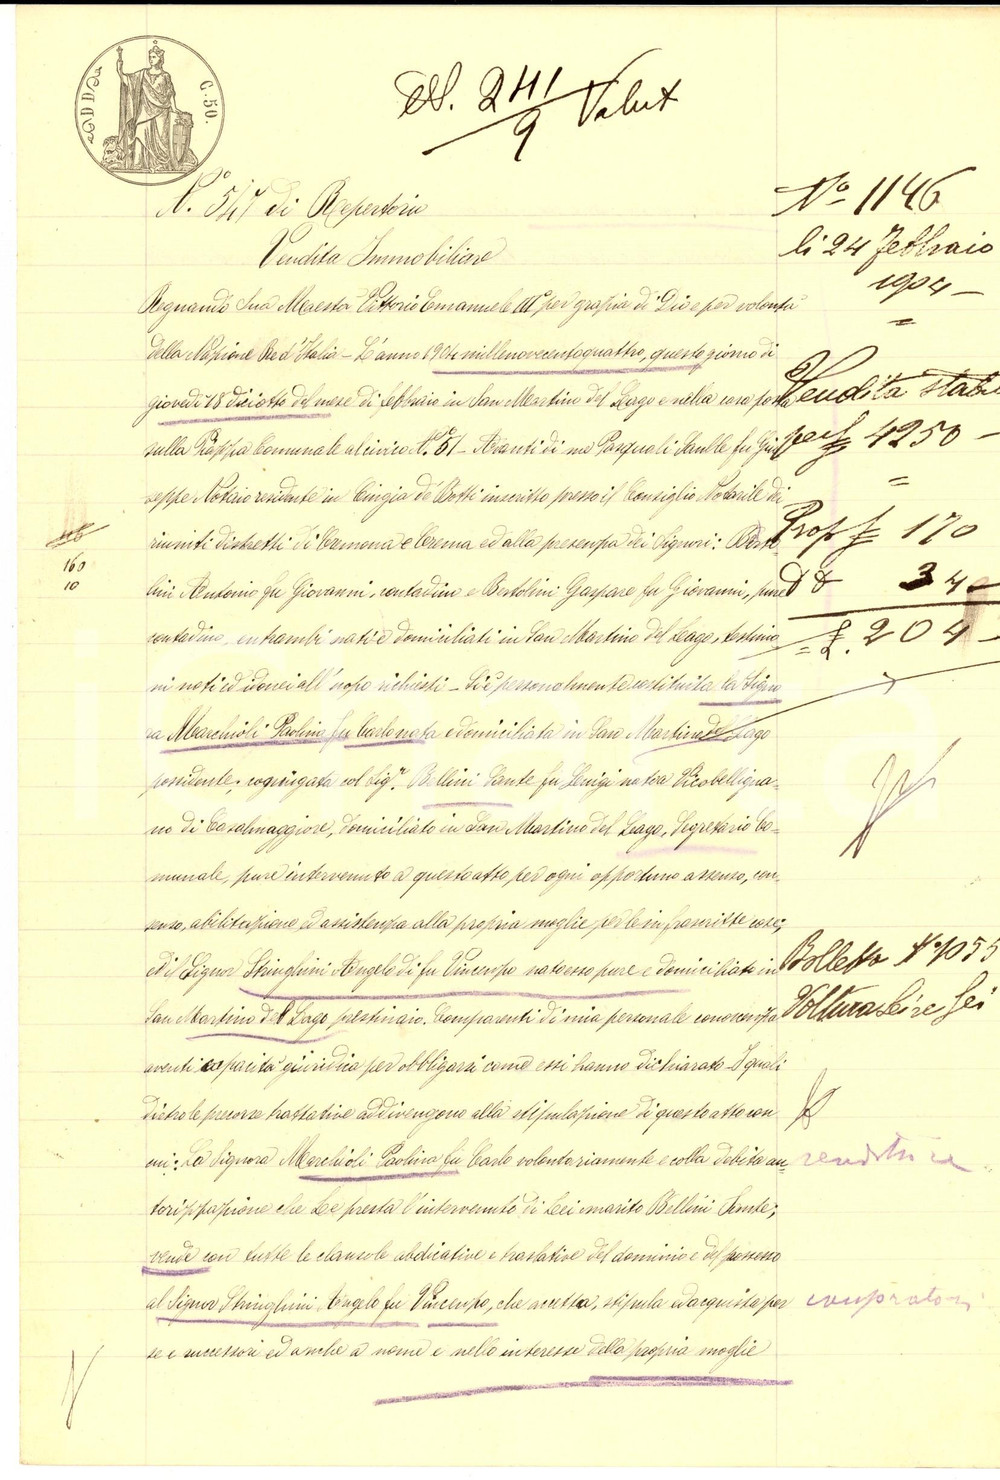 C. 50.
N.° 547 di Repertorio
Vendita Immobiliare
Regnando Sua Maestà Vittorio Emanuele III° per grazia di Dio e per volontà
della Nazione Re d'Italia - L'anno 1904 millenovecentoquattro, questo giorno di
giovedì 18 diciotto del mese di febbraio in San Martino del Lago e nella casa posta
sulla Piazza Comunale al civico N.° 51 - Avanti di me Pasquali Fanlle fu Giu
seppe Notaio residente in Cingia de' Botti inscritto presso il Consiglio Notarile di
riuniti distretti di Cremona e Crema ed alla presenza dei Signori: Berto-
lini Antonio fu Giovanni, contadino e Bertolini Gaspare fu Giovanni, pure
contadino, entrambi nati e domiciliati in San Martino del Lago, testimo
ni noti ed idonei all'uopo richiesti - Si è personalmente costituita la Signo
ra Marchioli Paolina fu Carlo nata e domiciliata in San Martino del Lago
possidente, coniugata col Sig.r Bellini Sante fu Luigi nato a Vicobellligna-
no di Casalmaggiore, domiciliato in San Martino del Lago, Segretario Co-
munale, pure intervenuto a questo atto per ogni opportuno assenso, con-
senso, abilitazione ed assistenza alla propria moglie per le infrascritte cose;
ed il Signor Stringhini Angelo di fu Vincenzo nato esso pure e domiciliato in
San Martino del Lago prestinaio. Comparenti di mia personale conoscenza
aventi capacità giuridica per obbligarsi come essi hanno dichiarato - I quali
dietro le precorse trattative addivengono alla stipulazione di questo atto con
cui: La Signora Marchioli Paolina fu Carlo volontariamente e colla debita au-
torizzazione che Le presta l'intervenuto di Lei marito Bellini Sante;
vende con tutte le clausole abdicative e traslative del dominio e del possesso
al Signor Stringhini Angelo fu Vincenzo, che accetta, stipula ed acquista per
se e successori ed anche a nome e nello interesse della propria moglie
241
9
N° 1146
li 24 Febbraio
1904 -
Vendita stabi
per £ 4250 -
Prop £ 170
34 -
£. 204 -
Bolletta N° 1055
Voltura Lire Sei
venditrice
compratori
160
10